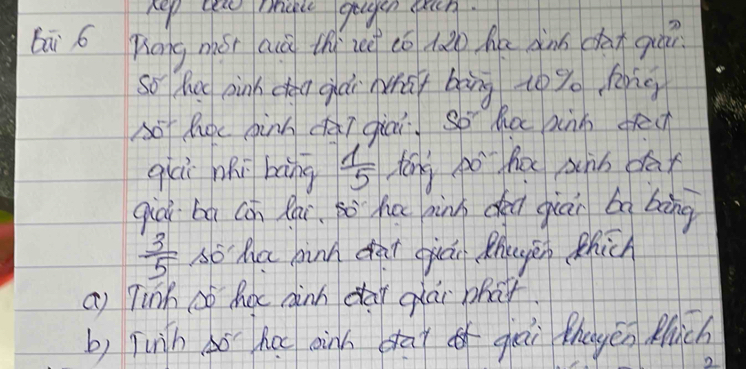 xếp
Bài 6 Trong một cuộc thi có 120 học sinh đạt giải.
Số học sinh đạt giải nhất bằng 10% tổng
số học sinh đạt giải. Số học sinh đạt
giải nhì bằng 1/5 tổng số học sinh đạt
giải ba còn lại. số học sinh đạt giải ba bằng
3/5 số học sinh đạt giải khuyến khích
a) Tính số học sinh đạt giải nhất.
b) Tính số học sinh đạt giải khuyến khích
2